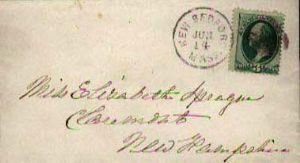 NEW BEDFORD
JUN
14
MASS.
Miss Elizabeth Sprague
Claremont
New Hampshire